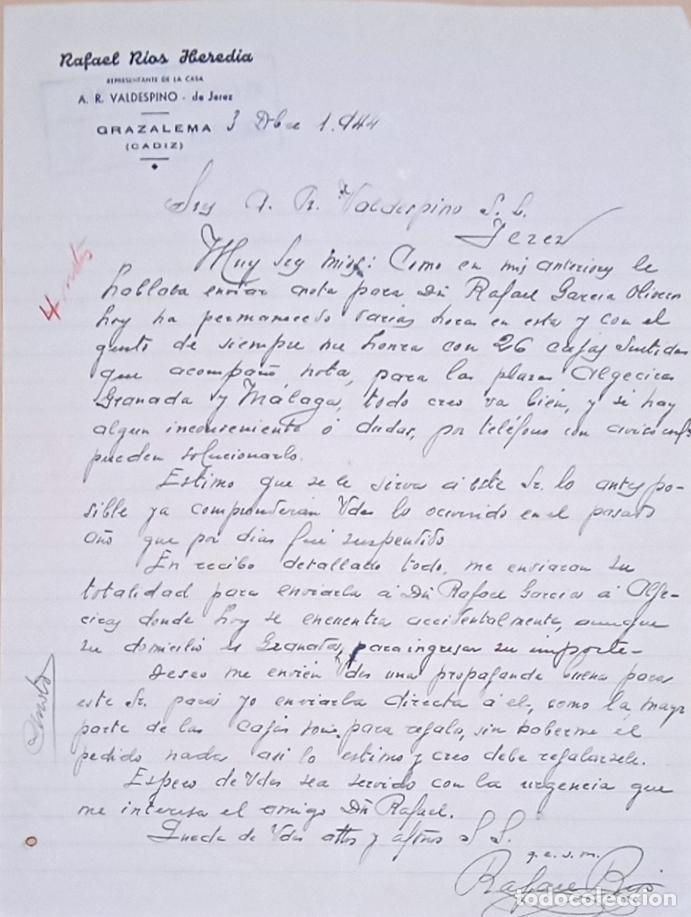 Rafael Ríos Heredia
REPRESENTANTE DE LA CASA
A. R. VALDESPINO - de Jerez
GRAZALEMA
(CADIZ)
3 Dbre 1.944
Srs A. R. Valdespino S. L.
Jerez
4
Muy Srs mios: Como en mis anteriores le
hablaba enviar nota para Dn Rafael Garcia Olivero
hoy ha permanecido varias horas en esta y con el
de siempre me honra con 26 cajas surtidas
que acompaño nota, para las plazas Algeciras
Granada y Málaga, todo creo va bien, y si hay
algun inconveniente ó dudas, por teléfono con
pueden solucionarlo.
Estimo que se le sirva á este Sr. lo antes po-
sible ya comprenderan Vdes lo ocurrido en el pasado
año que por dias fué suspendido
En recibo detallado todo, me enviaran su
totalidad para enviarla á Dn Rafael Garcia á Alge-
ciras donde hoy se encuentra accidentalmente, aunque
su domicilio es Granada, para ingresar su importe-
Deseo me envien Vdes una propaganda buena para
este Sr. para yo enviarla directa á el, como la mayr
parte de las cajas son para regalo, sin haberme el
pedido nada asi lo estimo y creo debe regalarsele.
Espero de Vdes sea servido con la urgencia que
me interesa el amigo Dn Rafael.
Queda de Vdes attos y afmo S. S.
q. e. s. m.
Rafael Rios
todocoleccion